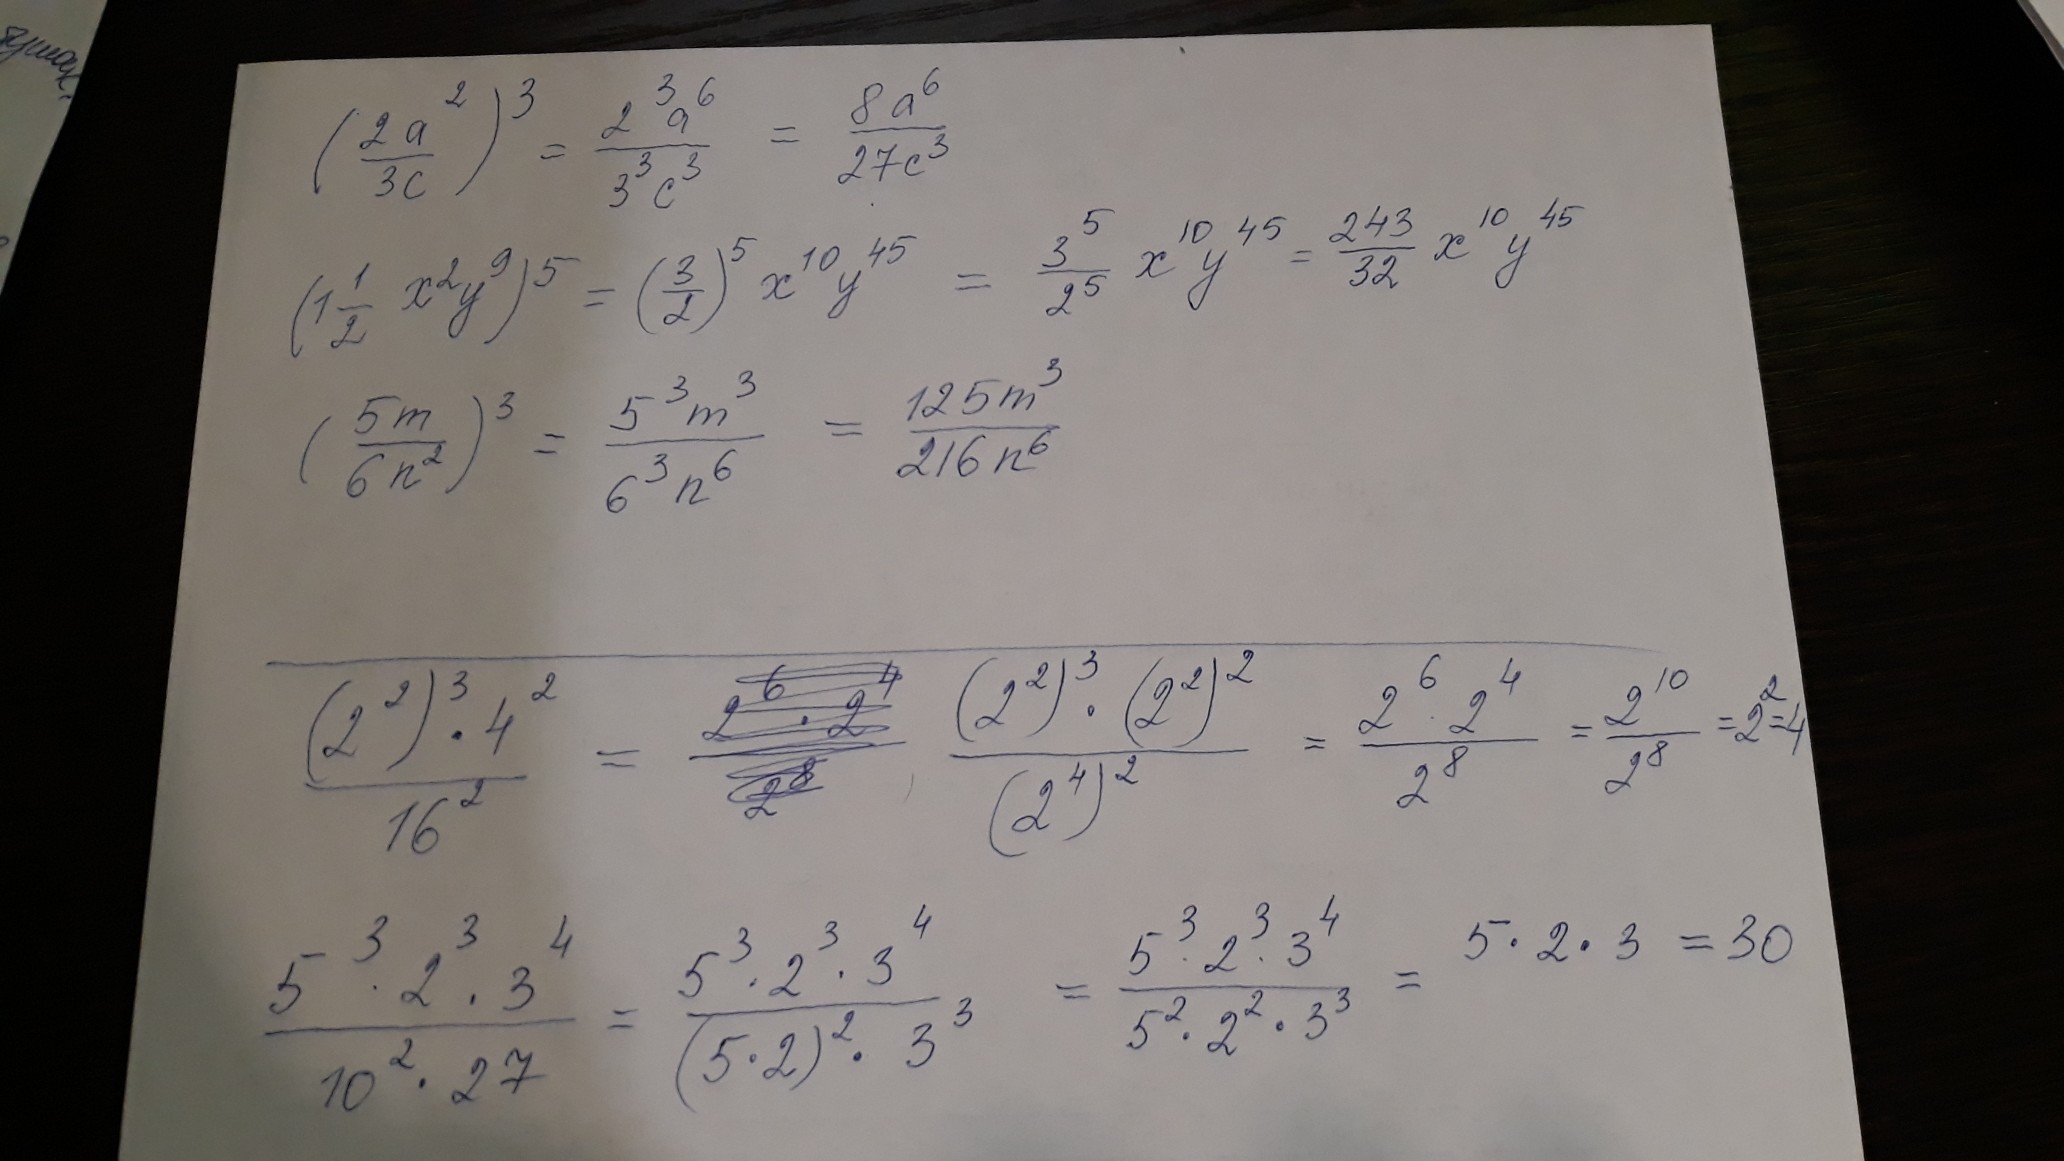 (2a²/3c)³ = 2³a⁶/3³c³ = 8a⁶/27c³
(1 1/2 x²y⁹)⁵ = (3/2)⁵ x¹⁰y⁴⁵ = 3⁵/2⁵ x¹⁰y⁴⁵ = 243/32 x¹⁰y⁴⁵
(5m/6n²)³ = 5³m³/6³n⁶ = 125m³/216n⁶
(2²)³·4²/16² = (2²)³·(2²)²/(2⁴)² = 2⁶·2⁴/2⁸ = 2¹⁰/2⁸ = 2² = 4
5³·2³·3⁴/10²·27 = 5³·2³·3⁴/(5·2)²·3³ = 5³·2³·3⁴/5²·2²·3³ = 5·2·3 = 30